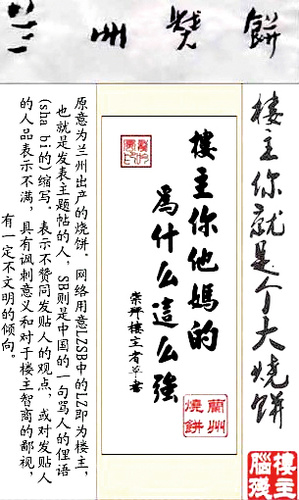 兰州燒餅
樓主你就是个大燒餅
樓主你他媽的
為什么這么強
崇拜樓主者草書
蘭州
燒餅
樓主
腦殘
原意为兰州出产的烧饼．网络用意LZSB中的LZ即为楼主，
也就是发表主题帖的人，SB则是中国的一句骂人的俚语
(sha bi的)缩写．表示不赞同发贴人的观点，或对发贴人
的人品表示不满，具有讽刺意义和对于楼主智商的鄙视，
有一定不文明的倾向．